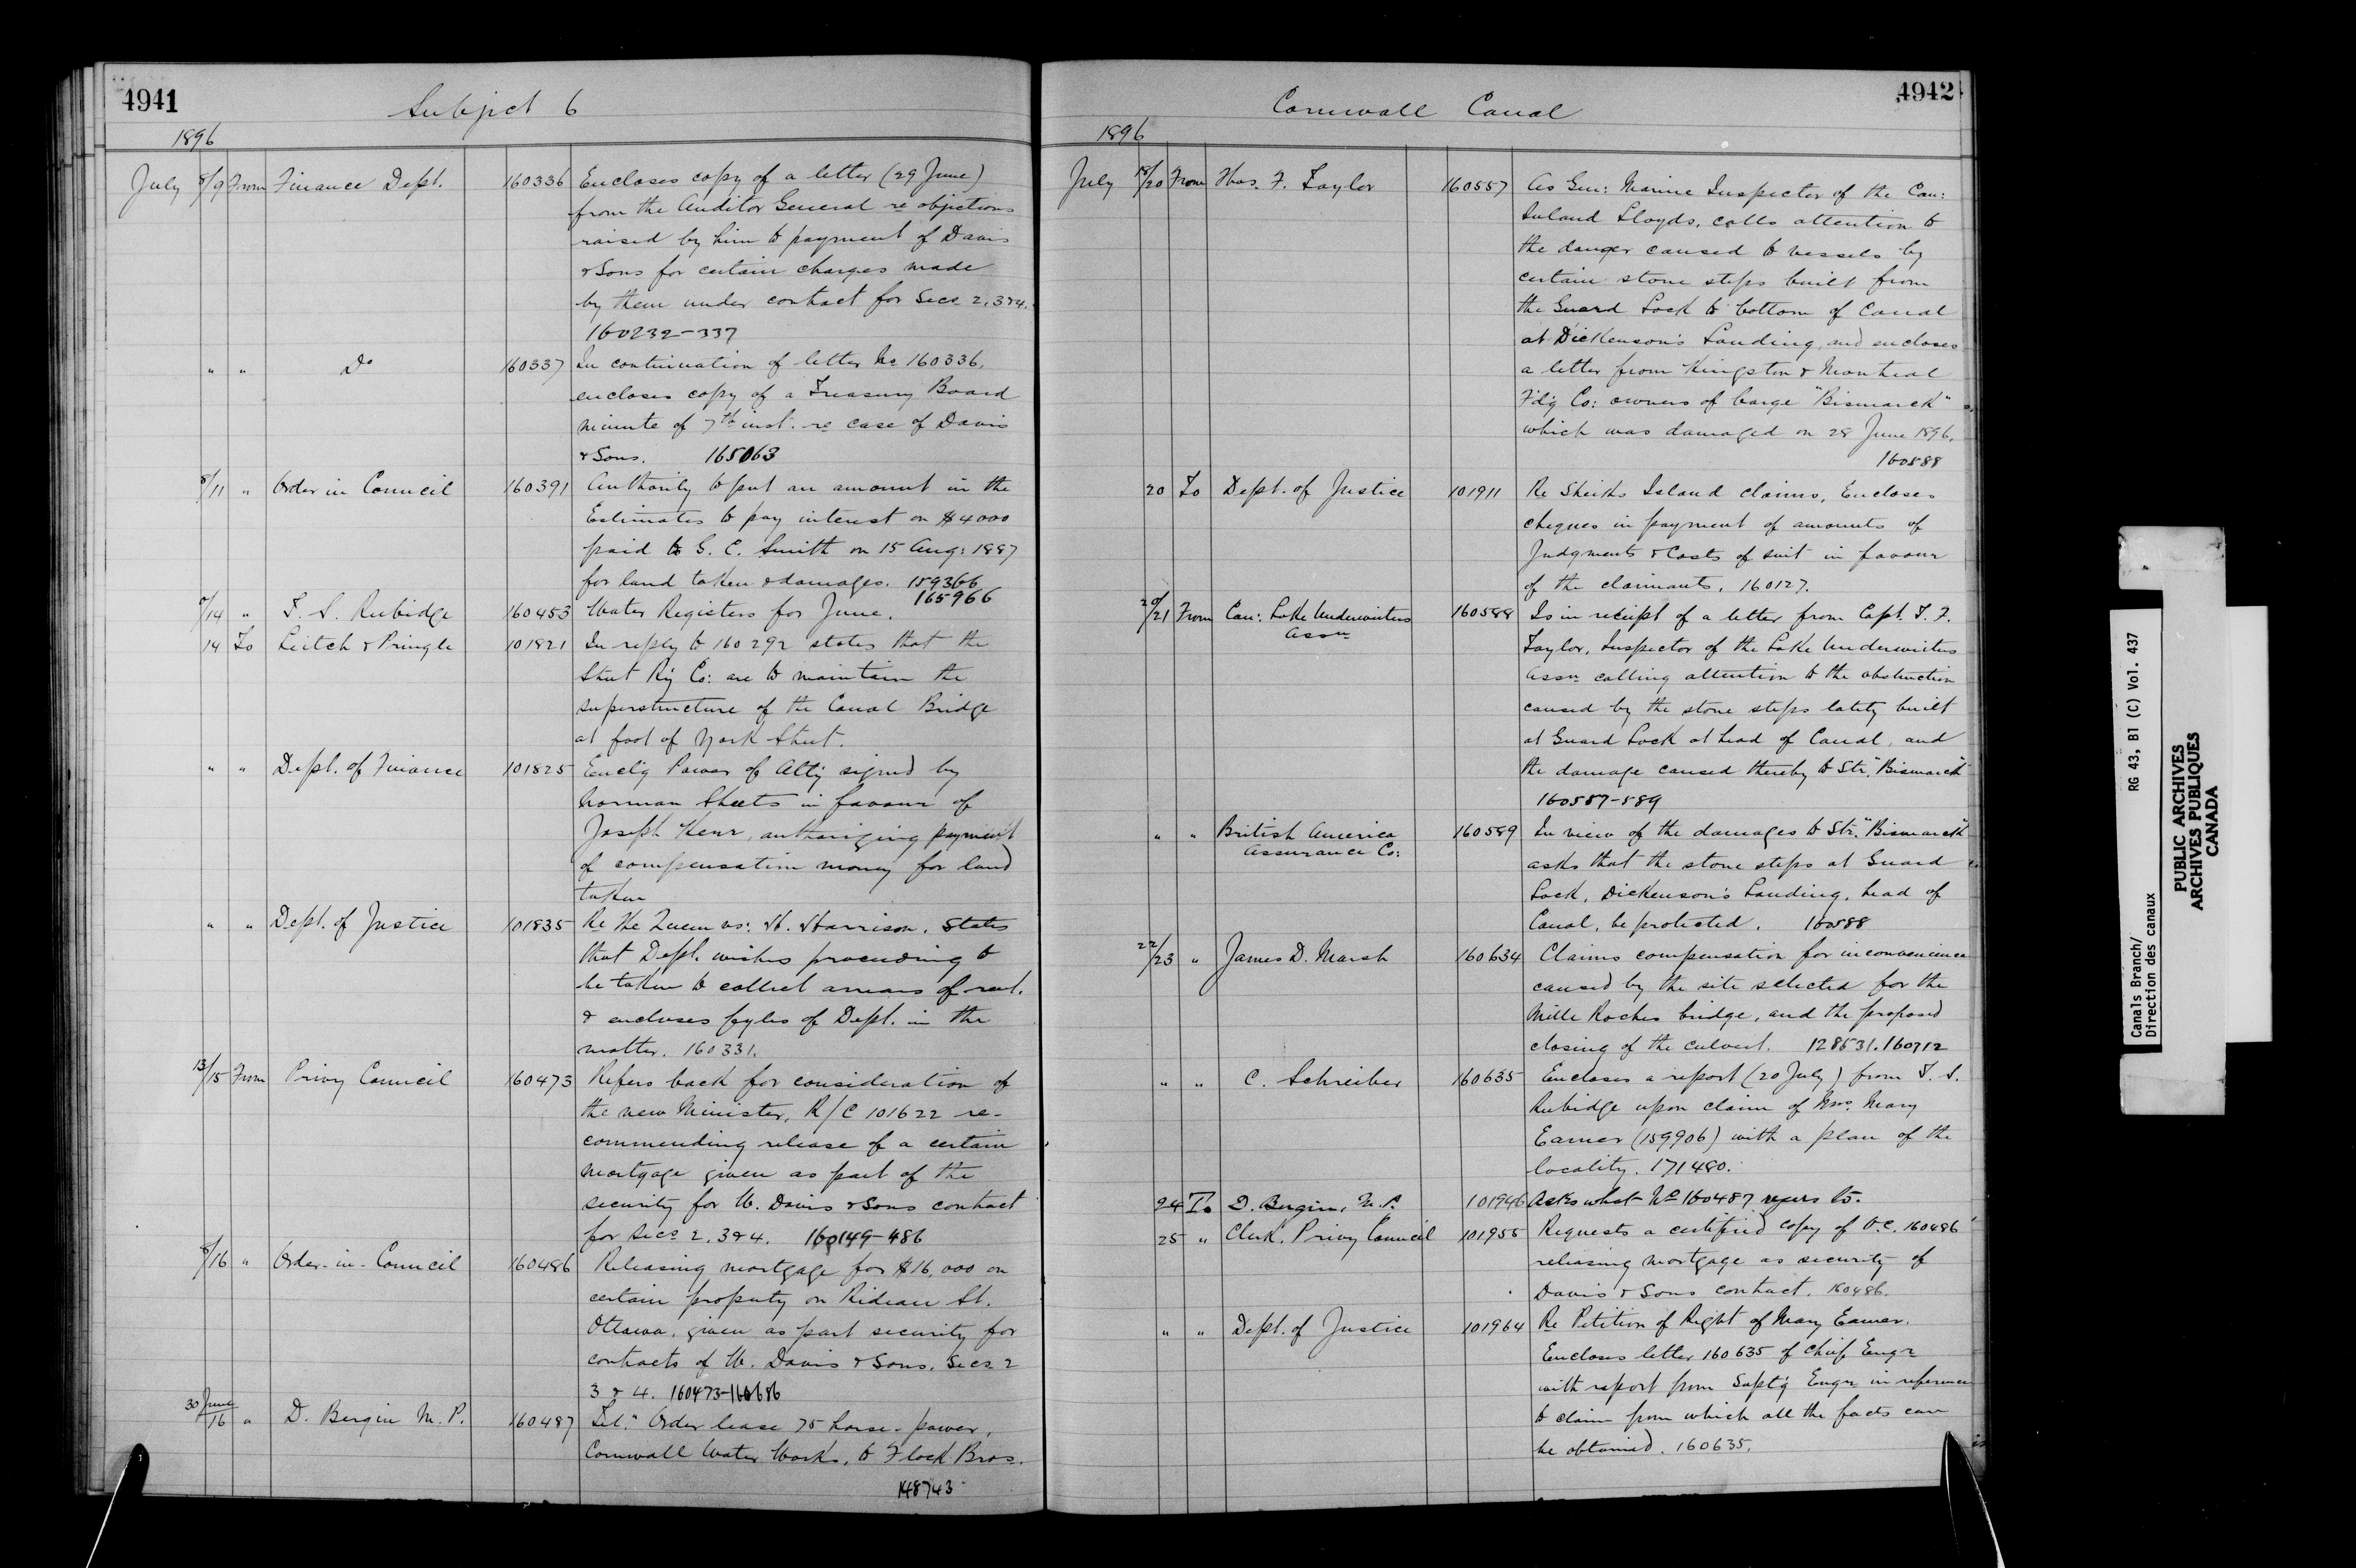 4941
Subject 6
1896
July 8/9 From Finance Dept. 160336 Encloses copy of a letter (29 June)
from the Auditor General re objections
raised by him to payment of Davis
& Sons for certain charges made
by them under contract for Secs 2, 3 & 4.
160232-337
" " Do 160337 In continuation of letter No 160336,
encloses copy of a Treasury Board
minute of 7th inst. re case of Davis
& Sons. 165063
8/11 " Order in Council 160391 Authority to put an amount in the
Estimates to pay interest on $4000
paid to G. C. Smith on 15 Aug: 1887
for land taken & damages. 159366
165966
/14 " T. S. Rubidge 160453 Water Registers for June.
14 To Leitch & Pringle 101821 In reply to 160292 states that the
Street Ry Co: are to maintain the
superstructure of the Canal Bridge
at foot of York Street.
" " Dept. of Finance 101825 Enclg Power of Atty signed by
Norman Sheets in favour of
Joseph Kerr, authorizing payment
of compensation money for land
taken
" " Dept. of Justice 101835 Re The Queen vs: H. Harrison. States
that Dept. wishes proceeding to
be taken to collect arrears of rent.
& encloses fyles of Dept. in the
matter. 160331.
13/15 From Privy Council 160473 Refers back for consideration of
the new Minister, R/C 101622 re-
commending release of a certain
mortgage given as part of the
security for W. Davis & Sons contract
for Secs 2. 3 & 4. 160149-486
8/16 " Order-in-Council 160486 Releasing mortgage for $16,000 on
certain property on Rideau St.
Ottawa, given as part security for
contracts of W. Davis & Sons. Secs 2
3 & 4. 160473-160686
30 June/16 " D. Bergin M. P. 160487 Tel: "Order lease 75 horse-power,
Cornwall Water Works, to Flock Bros.
148743
4942
Cornwall Canal
1896
July 18/20 From Thos. F. Taylor 160557 As Gen: Marine Inspector of the Can:
Inland Lloyds, calls attention to
the danger caused to vessels by
certain stone steps built from
the Guard Lock to bottom of Canal
at Dickenson's Landing, and encloses
a letter from Kingston & Montreal
F'd'g Co: owners of barge "Bismarck"
which was damaged on 28 June 1896.
160588
20 To Dept. of Justice 101911 Re Sheiks Island claims, Encloses
cheques in payment of amounts of
Judgments & Costs of suit in favour
of the claimants. 160127.
20/21 From Can: Lake Underwriters 160588 Is in receipt of a letter from Capt. T. F.
Assn
Taylor, Inspector of the Lake Underwriters
Assn calling attention to the obstruction
caused by the stone steps lately built
at Guard Lock at head of Canal, and
the damage caused thereby to Str. "Bismarck"
160557-589
" " British America 160589 In view of the damages to Str. "Bismarck"
Assurance Co:
asks that the stone steps at Guard
Lock, Dickenson's Landing, head of
Canal, be protected. 160588
22/23 " James D. Marsh 160634 Claims compensation for inconvenience
caused by the site selected for the
Mille Roches bridge, and the proposed
closing of the culvert. 128531. 160712
" " C. Schreiber 160635 Encloses a report (20 July) from T. S.
Rubidge upon claim of Mrs. Mary
Eamer (159906) with a plan of the
locality. 171480.
24 To D. Bergin, M. P. 101946 Asks what No 160487 refers to.
25 " Clerk. Privy Council 101955 Requests a certified copy of O.C. 160486
releasing mortgage as security of
Davis & Sons contract. 160486.
" " Dept. of Justice 101964 Re Petition of Right of Mary Eamer.
Encloses letter 160635 of Chief Engr
with report from Suptg Engr in reference
to claim from which all the facts can
be obtained. 160635.
Canals Branch/ RG 43, B1 (C) Vol. 437
Direction des canaux
PUBLIC ARCHIVES
ARCHIVES PUBLIQUES
CANADA